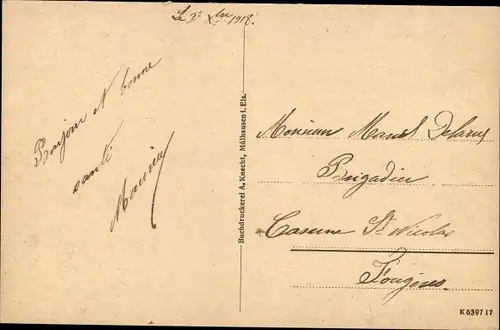 Le 2 Xbre 1918.
Bonjour et bonne
santé
Maurice
Buchdruckerei A. Knecht, Mülhausen i. Els.
Monsieur Marcel Delarue
Brigadier
Caserne St Nicolas
Fougères
K 6397 17